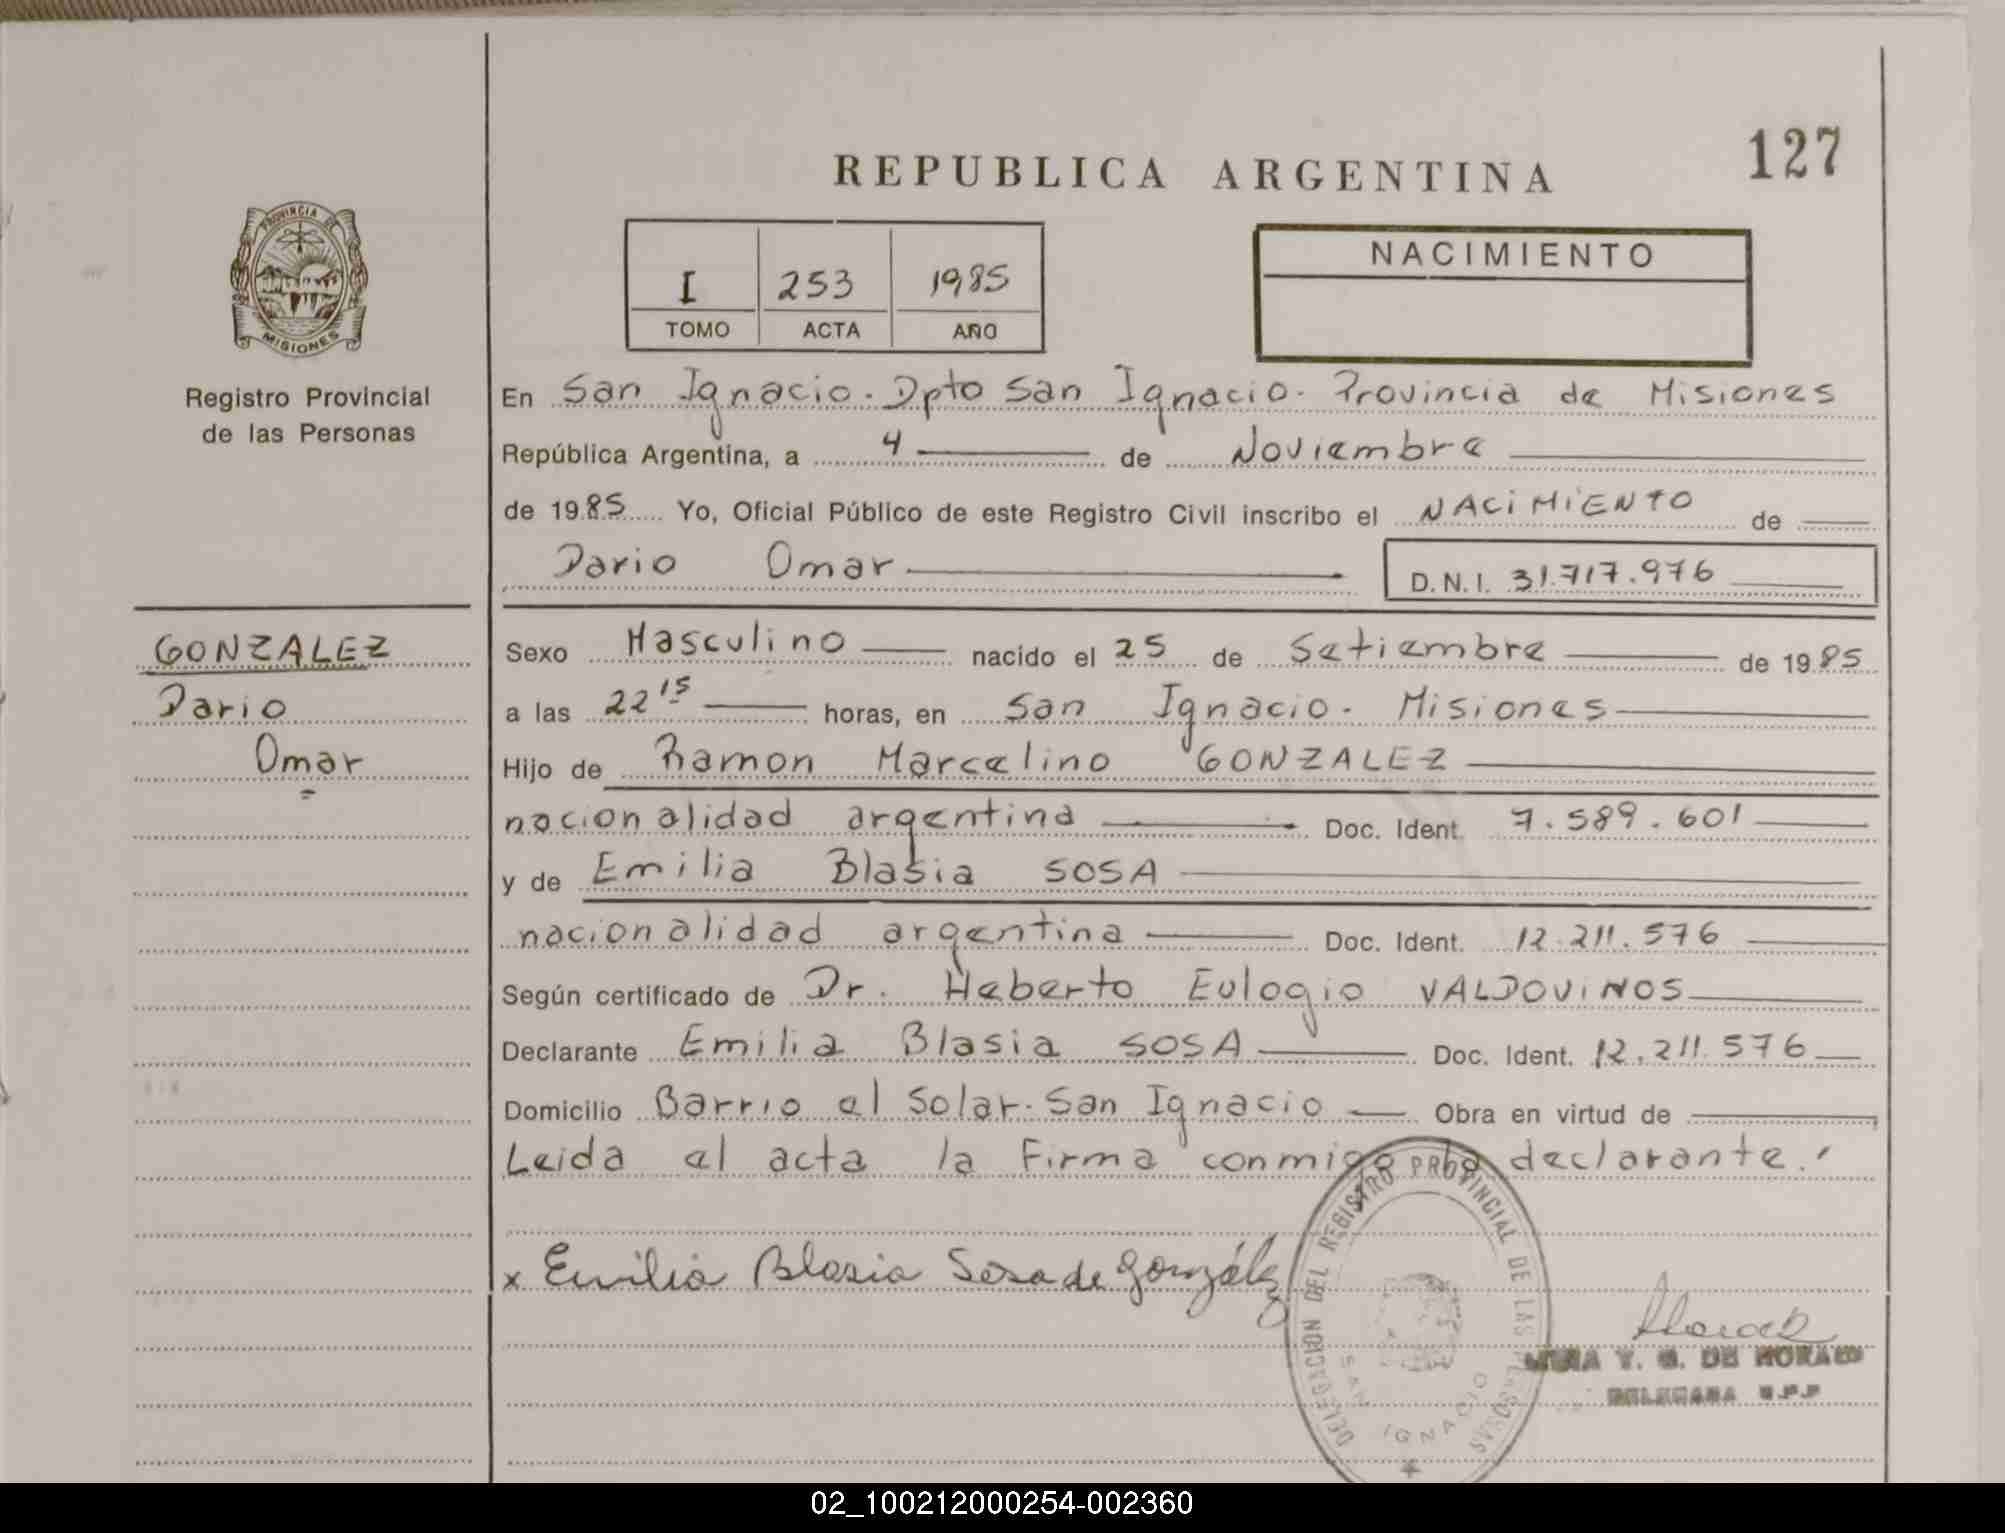 REPUBLICA ARGENTINA
127
PROVINCIA DE
MISIONES
Registro Provincial
de las Personas
I 253 1985
TOMO ACTA AÑO
NACIMIENTO
En San Ignacio. Dpto San Ignacio. Provincia de Misiones
República Argentina, a 4 de Noviembre
de 1985 Yo, Oficial Público de este Registro Civil inscribo el NACIMIENTO de
Dario Omar D.N.I. 31.717.976
GONZALEZ
Dario
Omar
Sexo Masculino nacido el 25 de Setiembre de 1985
a las 22 15 horas, en San Ignacio. Misiones
Hijo de Ramon Marcelino GONZALEZ
nacionalidad argentina Doc. Ident. 7.589.601
y de Emilia Blasia SOSA
nacionalidad argentina Doc. Ident. 12.211.576
Según certificado de Dr. Heberto Eulogio VALDOVINOS
Declarante Emilia Blasia SOSA Doc. Ident. 12.211.576
Domicilio Barrio el Solar. San Ignacio Obra en virtud de
Leida el acta la Firma conmigo la declarante.
x Emilia Blasia Sosa de González
DELEGACION DEL REGISTRO PROVINCIAL DE LAS PERSONAS
SAN IGNACIO
Y. G. DE MORALES
DELEGADA R.P.P
02_100212000254-002360